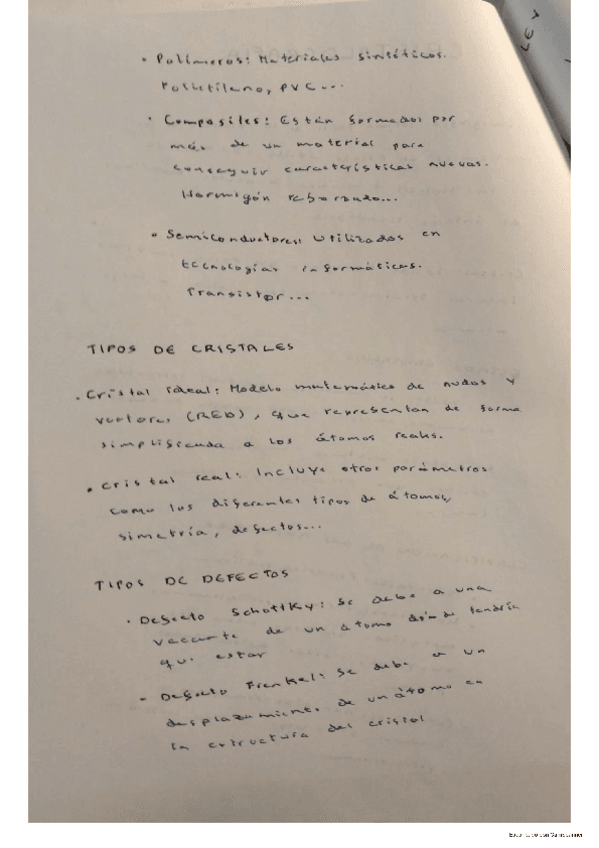 • Polímeros: Materiales sintéticos.
Polietileno, PVC...
• Composites: Están formados por
más de un material para
conseguir características nuevas.
Hormigón reforzado...
• Semiconductores: Utilizados en
tecnologías informáticas.
Transistor...
TIPOS DE CRISTALES
• Cristal ideal: Modelo matemático de nudos y
vectores (RED), que representan de forma
simplificada a los átomos reales.
• Cristal real: Incluye otros parámetros
como los diferentes tipos de átomos,
simetría, defectos...
TIPOS DE DEFECTOS
• Defecto Schottky: se debe a una
vacante de un átomo donde tendría
que estar
• Defecto Frenkel: se debe a un
desplazamiento de un átomo en
la estructura del cristal